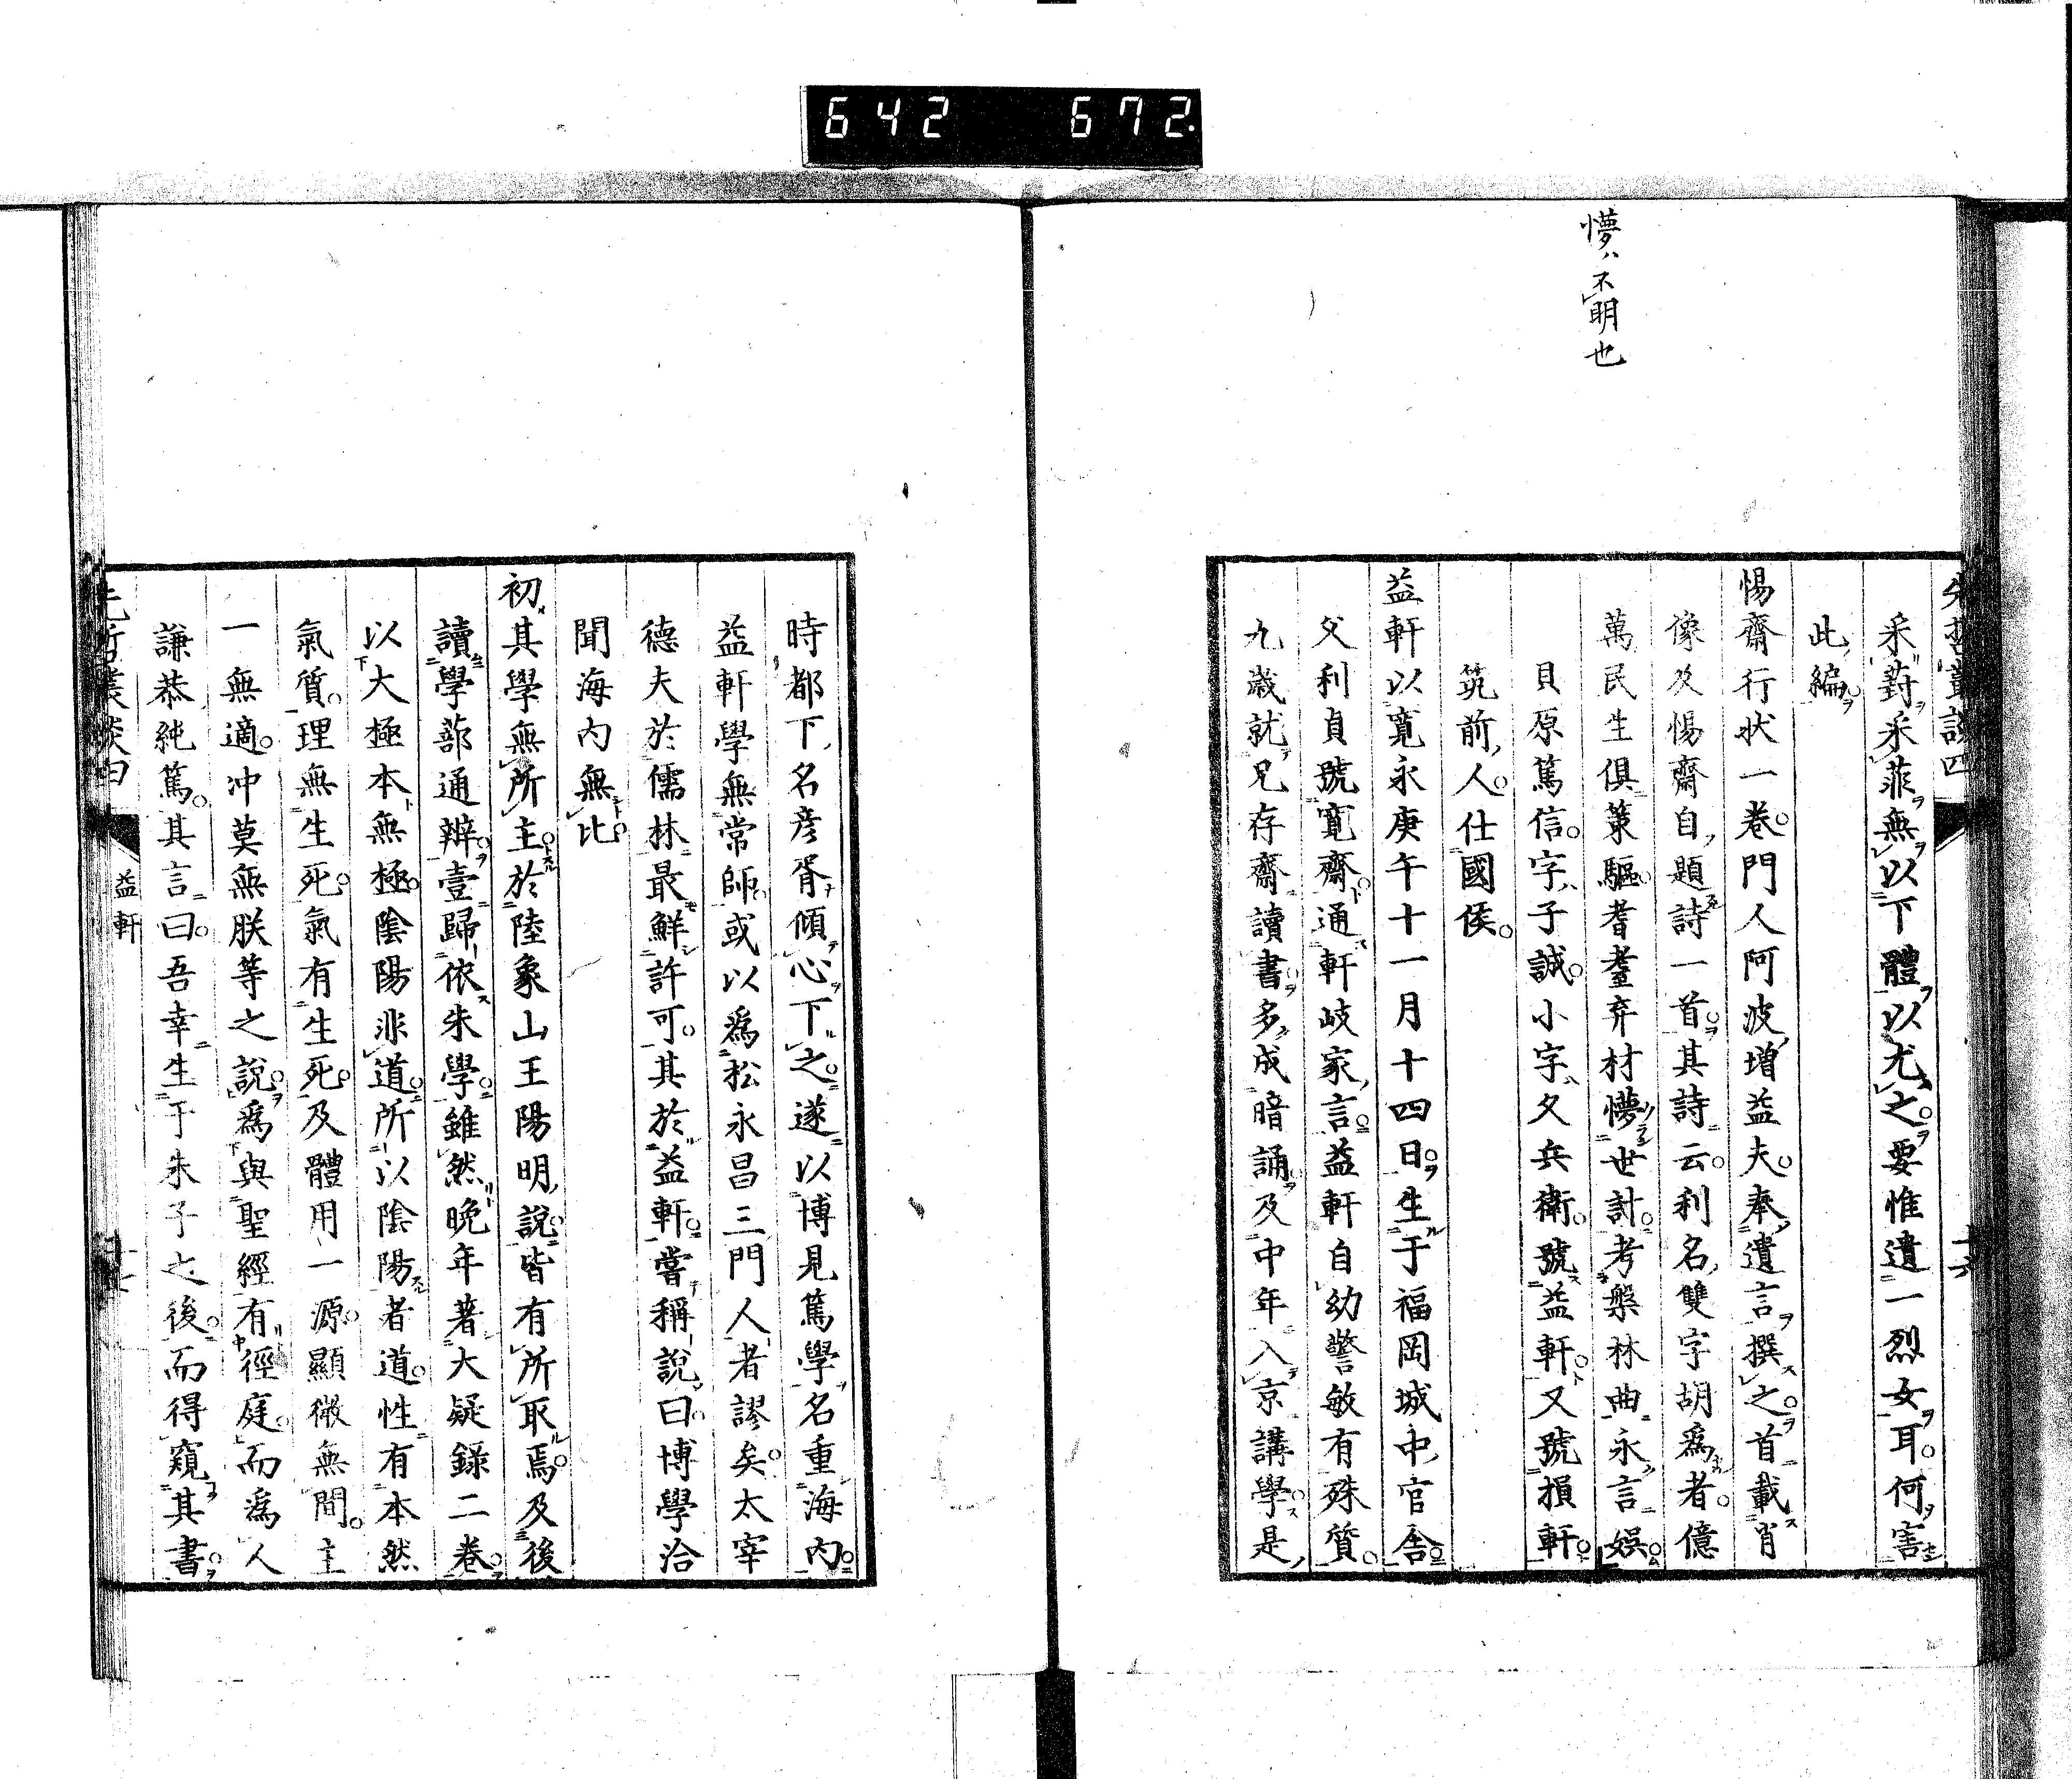 642 672.
懜ハ不明也
先哲叢談四
采葑采菲無以下體以尤之要惟遺一烈女耳何害
此編
惕齋行狀一卷門人阿波增益夫奉遺言撰之首載肖
像及惕齋自題詩一首其詩云利名雙字胡爲者億
萬民生俱策驅耆耋弃材懜世計考槃林曲永言娯
貝原篤信字子誠小字久兵衛號益軒又號損軒
筑前人仕國侯
益軒以寬永庚午十一月十四日生于福岡城中官舍
父利貞號寬齋通軒岐家言益軒自幼警敏有殊質
九歲就兄存齋讀書多成暗誦及中年入京講學是
時都下名彦胥傾心下之遂以博見篤學名重海內
益軒學無常師或以爲松永昌三門人者謬矣太宰
德夫於儒林最鮮許可其於益軒嘗稱說曰博學洽
聞海內無比
初其學無所主於陸象山王陽明說皆有所取焉及後
讀學蔀通辨壹歸依朱學雖然晚年著大疑錄二卷
以大極本無極陰陽非道所以陰陽者道性有本然
氣質理無生死氣有生死及體用一源顯微無間主
一無適冲莫無朕等之說爲與聖經有徑庭而爲人
謙恭純篤其言曰吾幸生于朱子之後而得窺其書
益軒